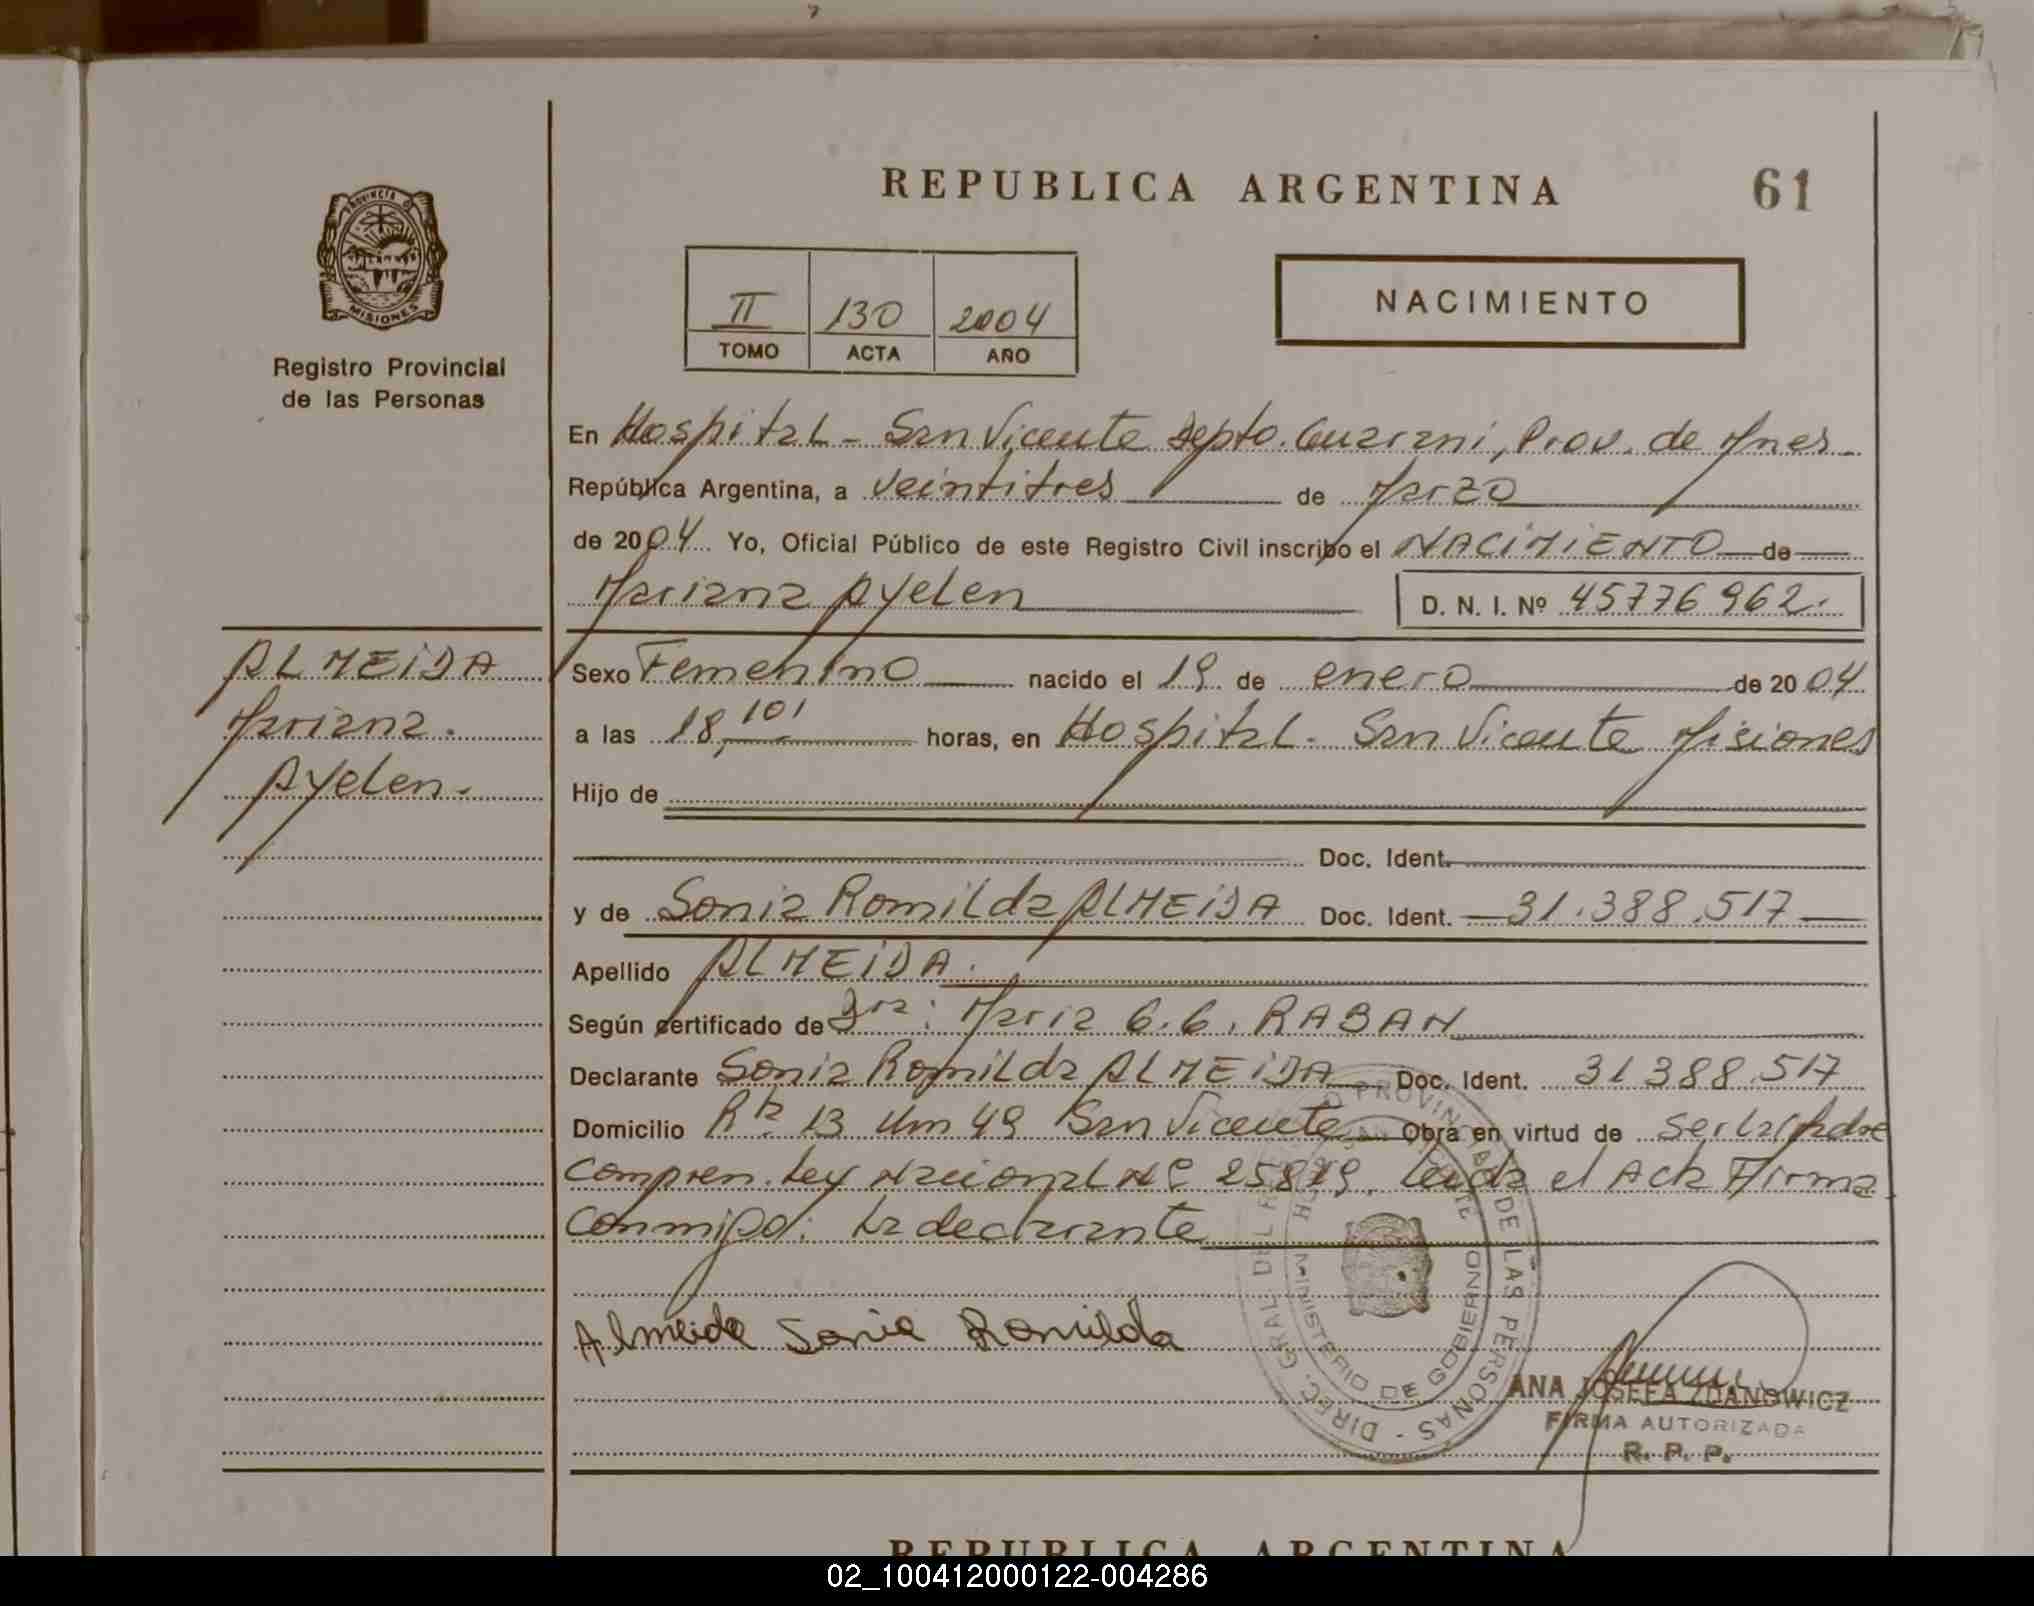 REPUBLICA ARGENTINA
61
PROVINCIA D MISIONES
Registro Provincial
de las Personas
II 130 2004
TOMO ACTA AÑO
NACIMIENTO
En Hospital - San Vicente Depto. Guarani, Prov. de Mnes.
República Argentina, a veintitres de Marzo
de 2004 Yo, Oficial Público de este Registro Civil inscribo el NACIMIENTO de
Mariana Ayelen D. N. I. Nº 45776962.
ALMEIDA
Mariana.
Ayelen.
Sexo Femenino nacido el 19 de enero de 2004
a las 18,10' horas, en Hospital. San Vicente Misiones
Hijo de
Doc. Ident.
y de Sonia Romilda ALMEIDA Doc. Ident. 31.388.517
Apellido ALMEIDA.
Según certificado de Dra: Maria G.G. RABAN
Declarante Sonia Romilda ALMEIDA Doc. Ident. 31388.517
Domicilio Rta 13 Km 49 San Vicente Obra en virtud de ser la Madre
Compren. Ley Nacional Nº 25819. Leida el Acta Firma
Conmigo: La declarante
Almeida Sonia Romilda
DIREC. GRAL. DEL REGISTRO PROVINCIAL DE LAS PERSONAS -
MINISTERIO DE GOBIERNO
ANA JOSEFA ZDANOWICZ
FIRMA AUTORIZADA
R. P. P.
REPUBLICA ARGENTINA
02_100412000122-004286